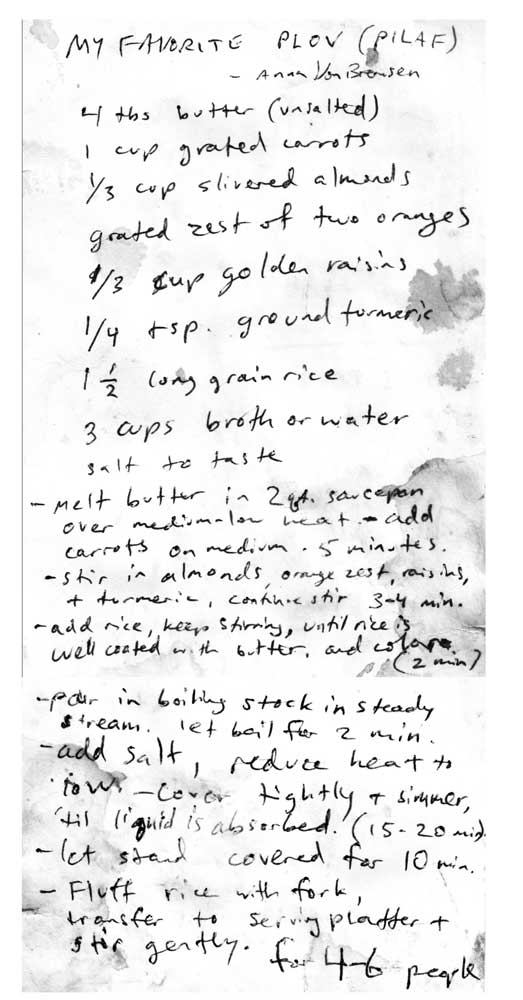 MY FAVORITE PLOV (PILAF)
- Anna Von Bremsen
4 tbs butter (unsalted)
1 cup grated carrots
1/3 cup slivered almonds
grated zest of two oranges
1/3 cup golden raisins
1/4 tsp. ground turmeric
1 1/2 long grain rice
3 cups broth or water
salt to taste
- melt butter in 2 qt. saucepan
over medium-low heat - add
carrots on medium. 5 minutes.
- stir in almonds, orange zest, raisins,
+ turmeric, continue stir 3-4 min.
- add rice, keep stirring, until rice is
well coated with butter, and
(2 min)
- pour in boiling stock in steady
stream. let boil for 2 min.
- add salt, reduce heat to
low - cover tightly + simmer,
'til liquid is absorbed. (15-20 min).
- let stand covered for 10 min.
- Fluff rice with fork,
transfer to serving platter +
stir gently.
for 4-6 people